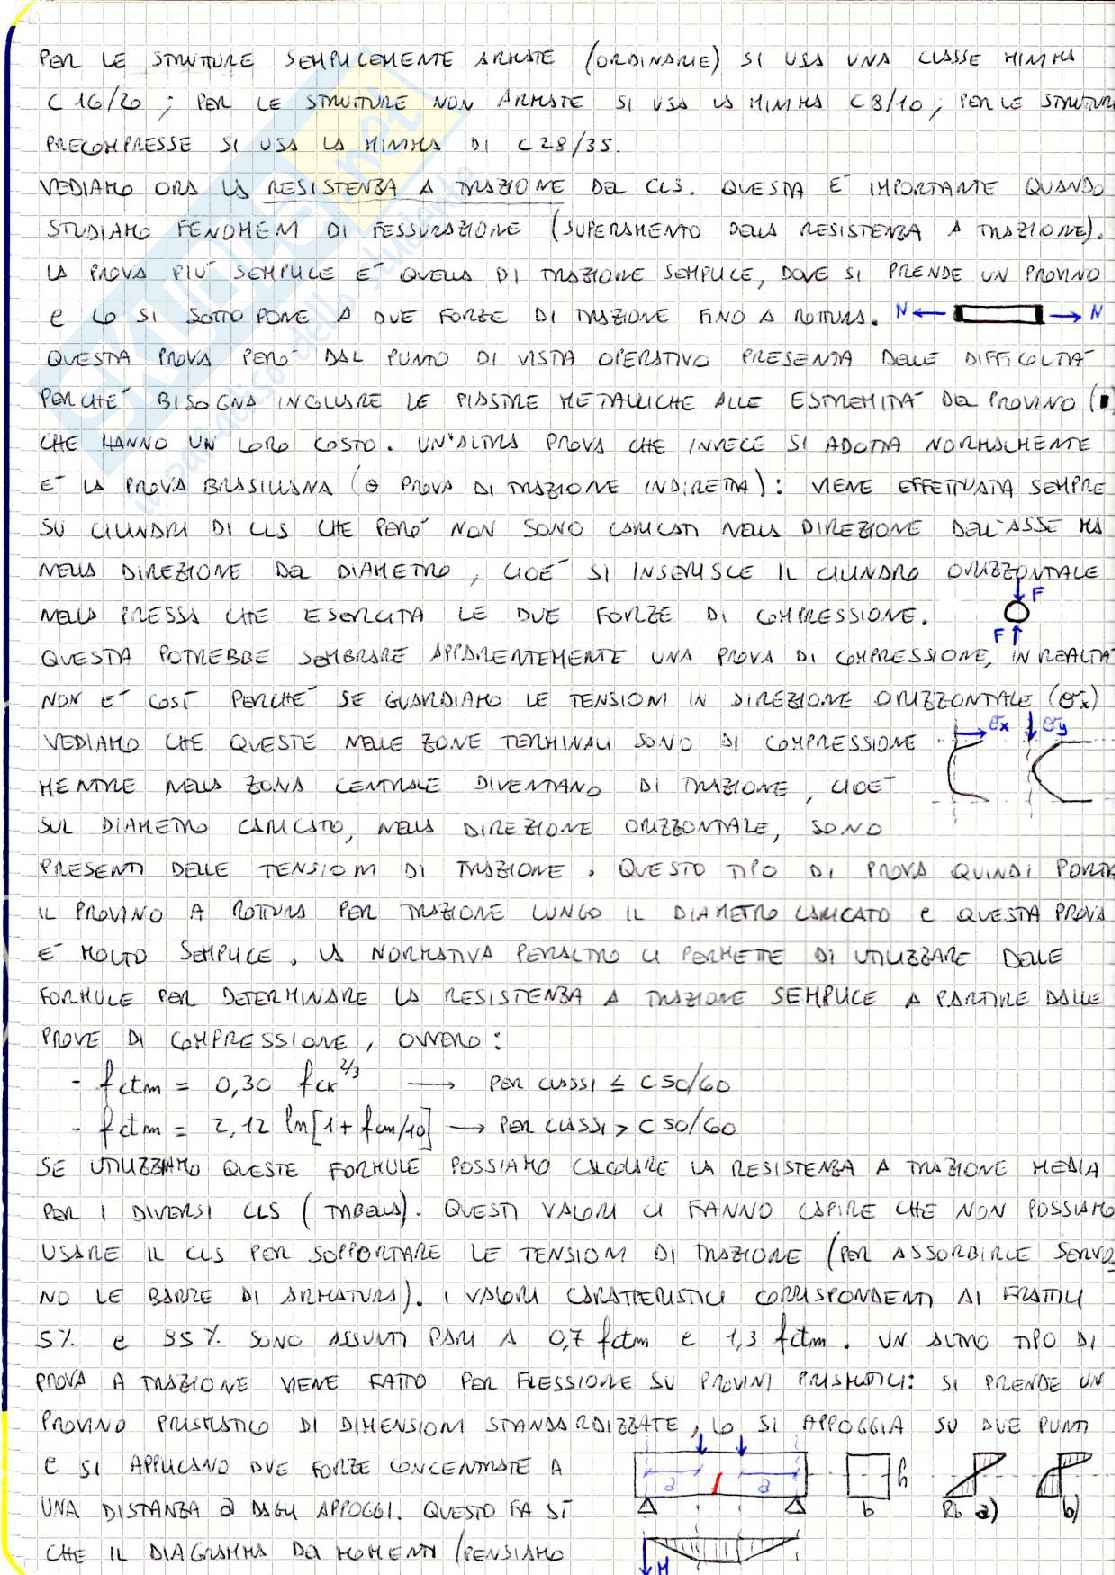 PER LE STRUTTURE SEMPLICEMENTE ARMATE (ORDINARIE) SI USA UNA CLASSE MINIMA
C 16/20 ; PER LE STRUTTURE NON ARMATE SI USA LA MINIMA C8/10 ; PER LE STRUTTURE
PRECOMPRESSE SI USA LA MINIMA DI C28/35.
VEDIAMO ORA LA RESISTENZA A TRAZIONE DEL CLS. QUESTA E' IMPORTANTE QUANDO
STUDIAMO FENOMENI DI FESSURAZIONE (SUPERAMENTO DELLA RESISTENZA A TRAZIONE).
LA PROVA PIU' SEMPLICE E' QUELLA DI TRAZIONE SEMPLICE, DOVE SI PRENDE UN PROVINO
e LO SI SOTTOPONE A DUE FORZE DI TRAZIONE FINO A ROTTURA. N N
QUESTA PROVA PERO' DAL PUNTO DI VISTA OPERATIVO PRESENTA DELLE DIFFICOLTA'
PERCHE' BISOGNA INCLUARE LE PIASTRE METALLICHE ALLE ESTREMITA' DEL PROVINO (
CHE HANNO UN LORO COSTO. UN'ALTRA PROVA CHE INVECE SI ADOTTA NORMALMENTE
E' LA PROVA BRASILIANA (O PROVA DI TRAZIONE INDIRETTA): VIENE EFFETTUATA SEMPRE
SU CILINDRI DI CLS CHE PERO' NON SONO CARICATI NELLA DIREZIONE DELL'ASSE MA
NELLA DIREZIONE DEL DIAMETRO, CIOE' SI INSERISCE IL CILINDRO ORIZZONTALE
NELLA PRESSA CHE ESERCITA LE DUE FORZE DI COMPRESSIONE. F
F
QUESTA POTREBBE SEMBRARE APPARENTEMENTE UNA PROVA DI COMPRESSIONE, IN REALTA'
NON E' COSI' PERCHE' SE GUARDIAMO LE TENSIONI IN DIREZIONE ORIZZONTALE (σx)
VEDIAMO CHE QUESTE NELLE ZONE TERMINALI SONO DI COMPRESSIONE σx σy
MENTRE NELLA ZONA CENTRALE DIVENTANO DI TRAZIONE, CIOE'
SUL DIAMETRO CARICATO, NELLA DIREZIONE ORIZZONTALE, SONO
PRESENTI DELLE TENSIONI DI TRAZIONE. QUESTO TIPO DI PROVA QUINDI PORTA
IL PROVINO A ROTTURA PER TRAZIONE LUNGO IL DIAMETRO CARICATO e QUESTA PROVA
E' MOLTO SEMPLICE. LA NORMATIVA PERALTRO CI PERMETTE DI UTILIZZARE DELLE
FORMULE PER DETERMINARE LA RESISTENZA A TRAZIONE SEMPLICE A PARTIRE DALLE
PROVE DI COMPRESSIONE, OVVERO:
- fctm = 0,30 fck^2/3 → PER CLASSI ≤ C50/60
- fctm = 2,12 ln[1+fcm/10] → PER CLASSI > C50/60
SE UTILIZZIAMO QUESTE FORMULE POSSIAMO CALCOLARE LA RESISTENZA A TRAZIONE MEDIA
PER I DIVERSI CLS (TABELLA). QUESTI VALORI CI FANNO CAPIRE CHE NON POSSIAMO
USARE IL CLS PER SOPPORTARE LE TENSIONI DI TRAZIONE (PER ASSORBIRLE SERVO_
NO LE BARRE DI ARMATURA). I VALORI CARATTERISTICI CORRISPONDENTI AI FRATTILI
5% e 95% SONO ASSUNTI PARI A 0,7 fctm e 1,3 fctm. UN ALTRO TIPO DI
PROVA A TRAZIONE VIENE FATTO PER FLESSIONE SU PROVINI PRISMATICI: SI PRENDE UN
PROVINO PRISMATICO DI DIMENSIONI STANDARDIZZATE, LO SI APPOGGIA SU DUE PUNTI
e SI APPLICANO DUE FORZE CONCENTRATE A a a h
UNA DISTANZA a DAGLI APPOGGI. QUESTO FA SI' b Rb a) b)
CHE IL DIAGRAMMA DEI MOMENTI (PENSIAMO M